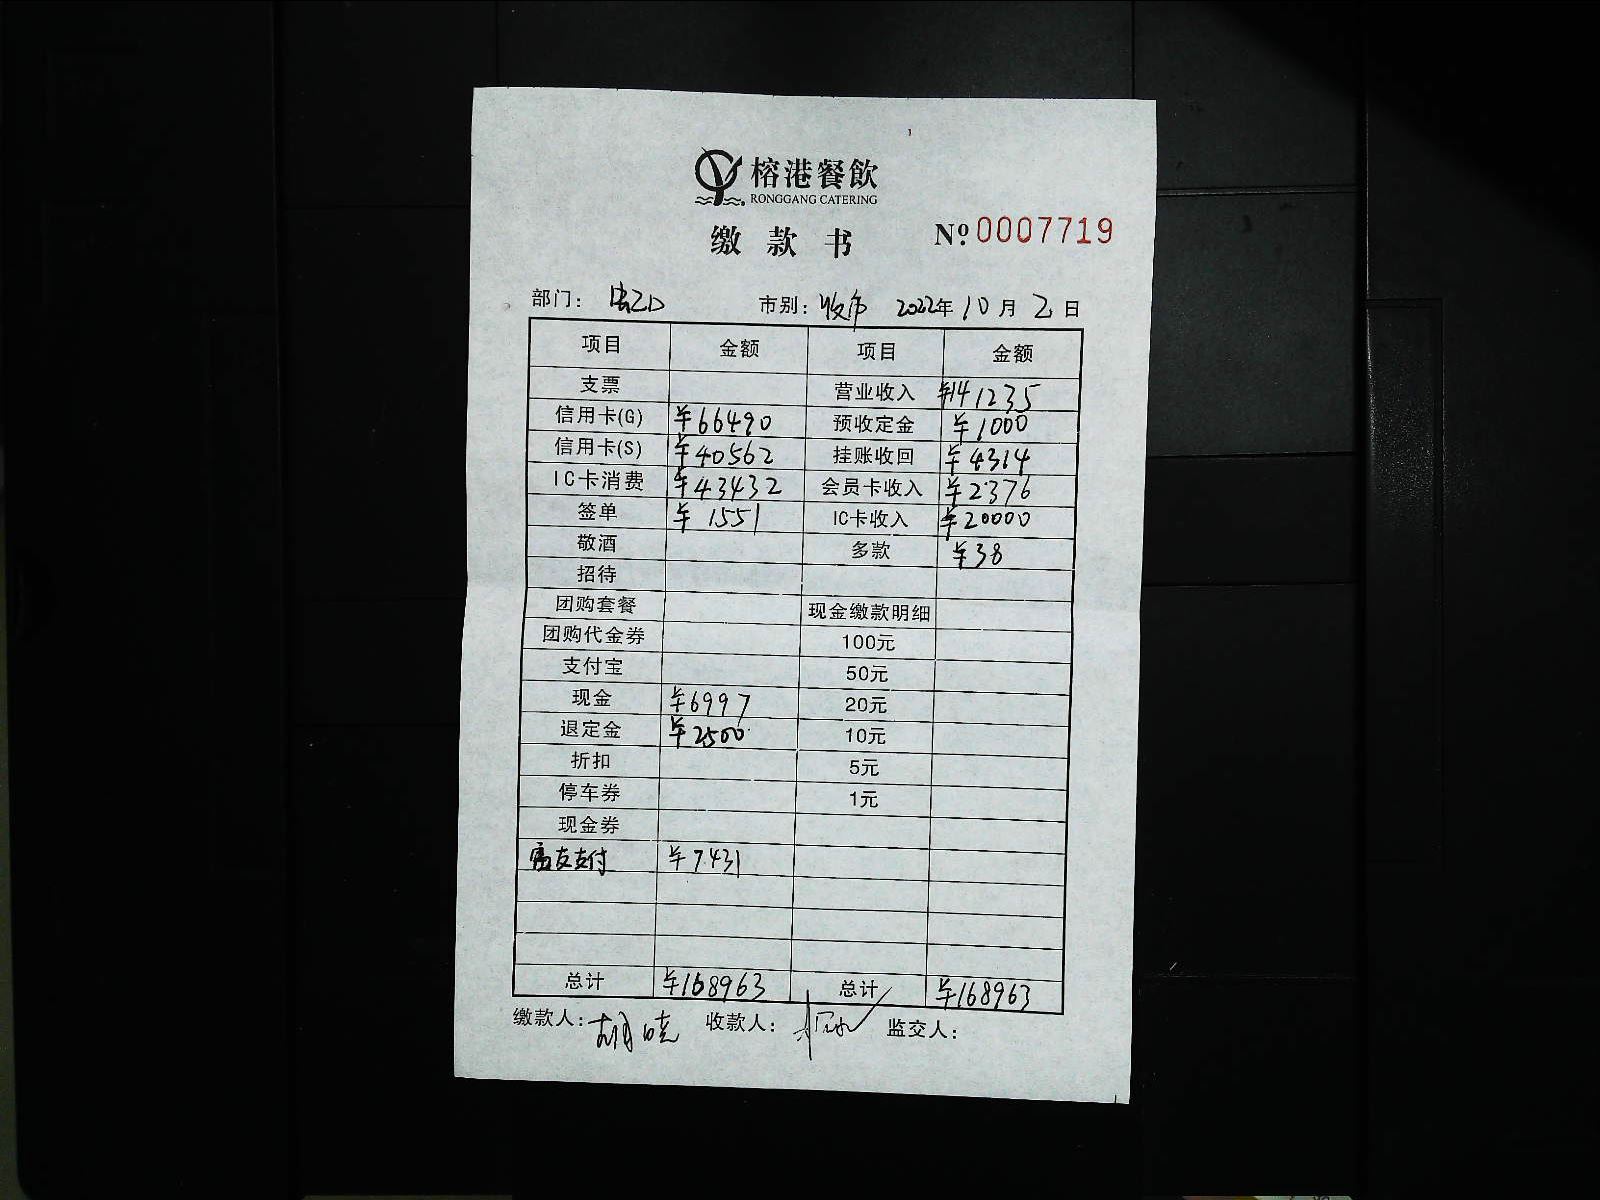 榕港餐飲
RONGGANG CATERING
缴款书 Nº 0007719
部门： 市别：收市 2022年10月2日
项目 金额 项目 金额
支票 营业收入 ¥141235
信用卡(G) ¥66490 预收定金 ¥1000
信用卡(S) ¥40562 挂账收回 ¥4314
IC卡消费 ¥43432 会员卡收入 ¥2376
签单 ¥1551 IC卡收入 ¥20000
敬酒 多款 ¥38
招待
团购套餐 现金缴款明细
团购代金券 100元
支付宝 50元
现金 ¥6997 20元
退定金 ¥2500 10元
折扣 5元
停车券 1元
现金券
富友支付 ¥7431
总计 ¥168963 总计 ¥168963
缴款人：胡晓 收款人： 监交人：